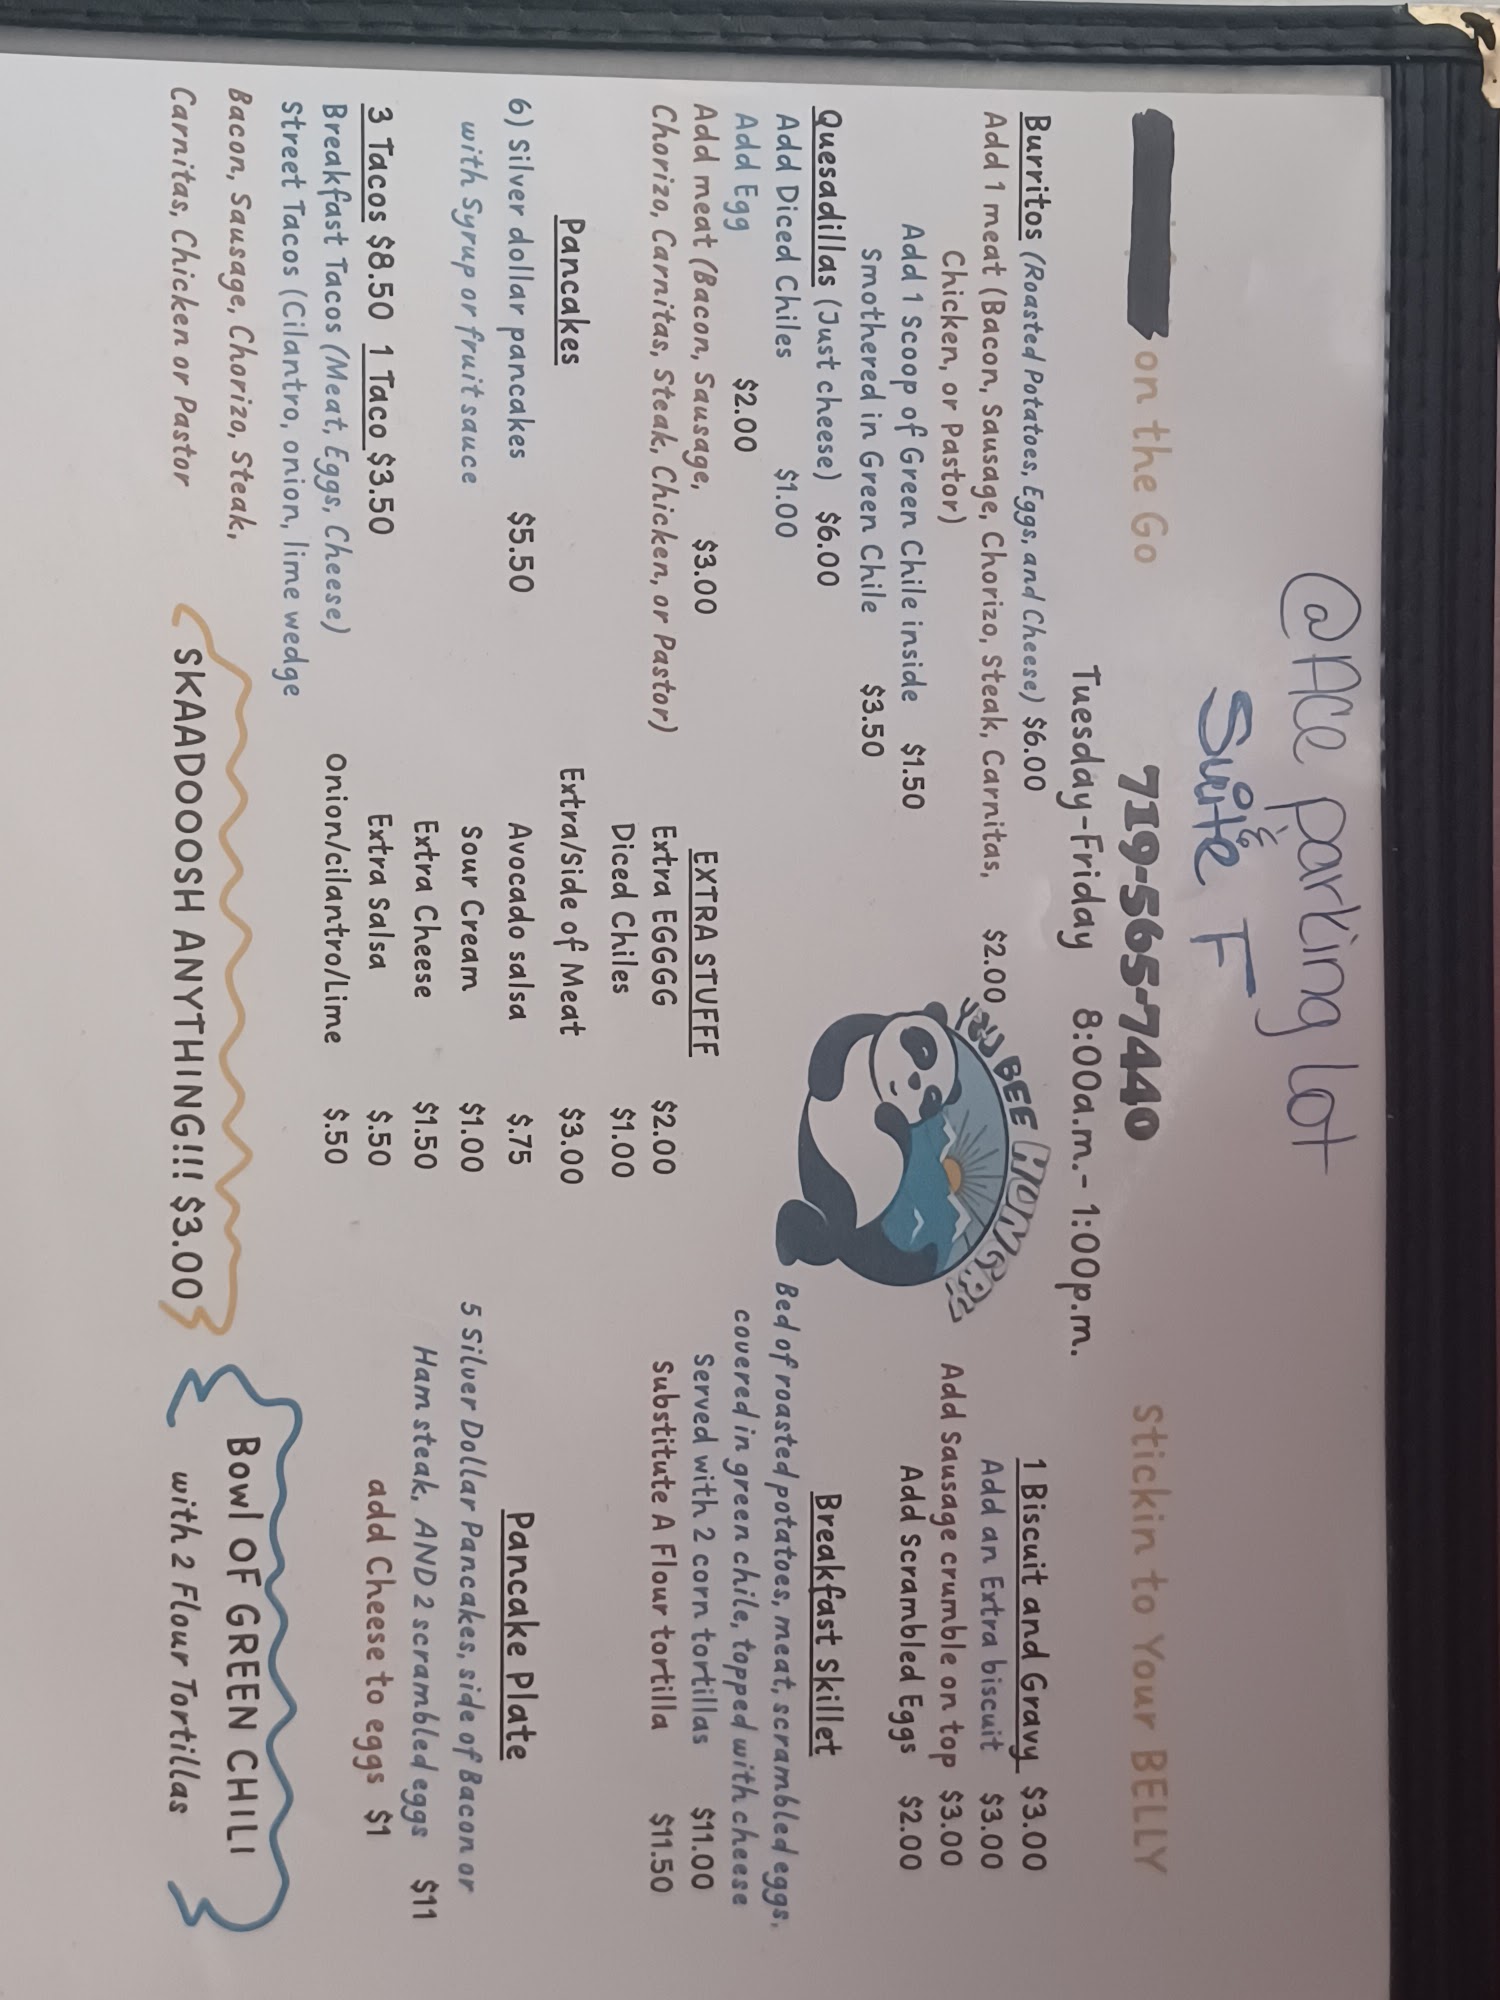 @ Ace parking lot
&
Suite F
on the Go
719-565-7440
Stickin to Your BELLY
Tuesday-Friday 8:00a.m.- 1:00p.m.
Burritos (Roasted Potatoes, Eggs, and Cheese) $6.00
Add 1 meat (Bacon, Sausage, Chorizo, Steak, Carnitas, $2.00
Chicken, or Pastor)
Add 1 Scoop of Green Chile inside $1.50
Smothered in Green Chile $3.50
Quesadillas (Just cheese) $6.00
Add Diced Chiles $1.00
Add Egg $2.00
Add meat (Bacon, Sausage, $3.00
Chorizo, Carnitas, Steak, Chicken, or Pastor)
Pancakes
6) Silver dollar pancakes $5.50
with Syrup or fruit sauce
3 Tacos $8.50 1 Taco $3.50
Breakfast Tacos (Meat, Eggs, Cheese)
Street Tacos (Cilantro, onion, lime wedge
Bacon, Sausage, Chorizo, Steak,
Carnitas, Chicken or Pastor
YOU BEE HUNGRY
EXTRA STUFFF
Extra EGGGG $2.00
Diced Chiles $1.00
Extra/Side of Meat $3.00
Avocado salsa $.75
Sour Cream $1.00
Extra Cheese $1.50
Extra Salsa $.50
Onion/cilantro/Lime $.50
SKAADOOOSH ANYTHING!!! $3.00
1 Biscuit and Gravy $3.00
Add an Extra biscuit $3.00
Add Sausage crumble on top $3.00
Add Scrambled Eggs $2.00
Breakfast Skillet
Bed of roasted potatoes, meat, scrambled eggs,
covered in green chile, topped with cheese
Served with 2 corn tortillas $11.00
Substitute A Flour tortilla $11.50
Pancake Plate
5 Silver Dollar Pancakes, side of Bacon or
Ham steak, AND 2 scrambled eggs $11
add Cheese to eggs $1
Bowl OF GREEN CHILI
with 2 Flour Tortillas